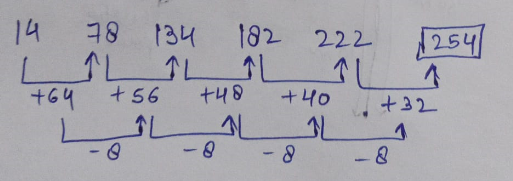 14 78 134 182 222 254
+64 +56 +48 +40 +32
-8 -8 -8 -8